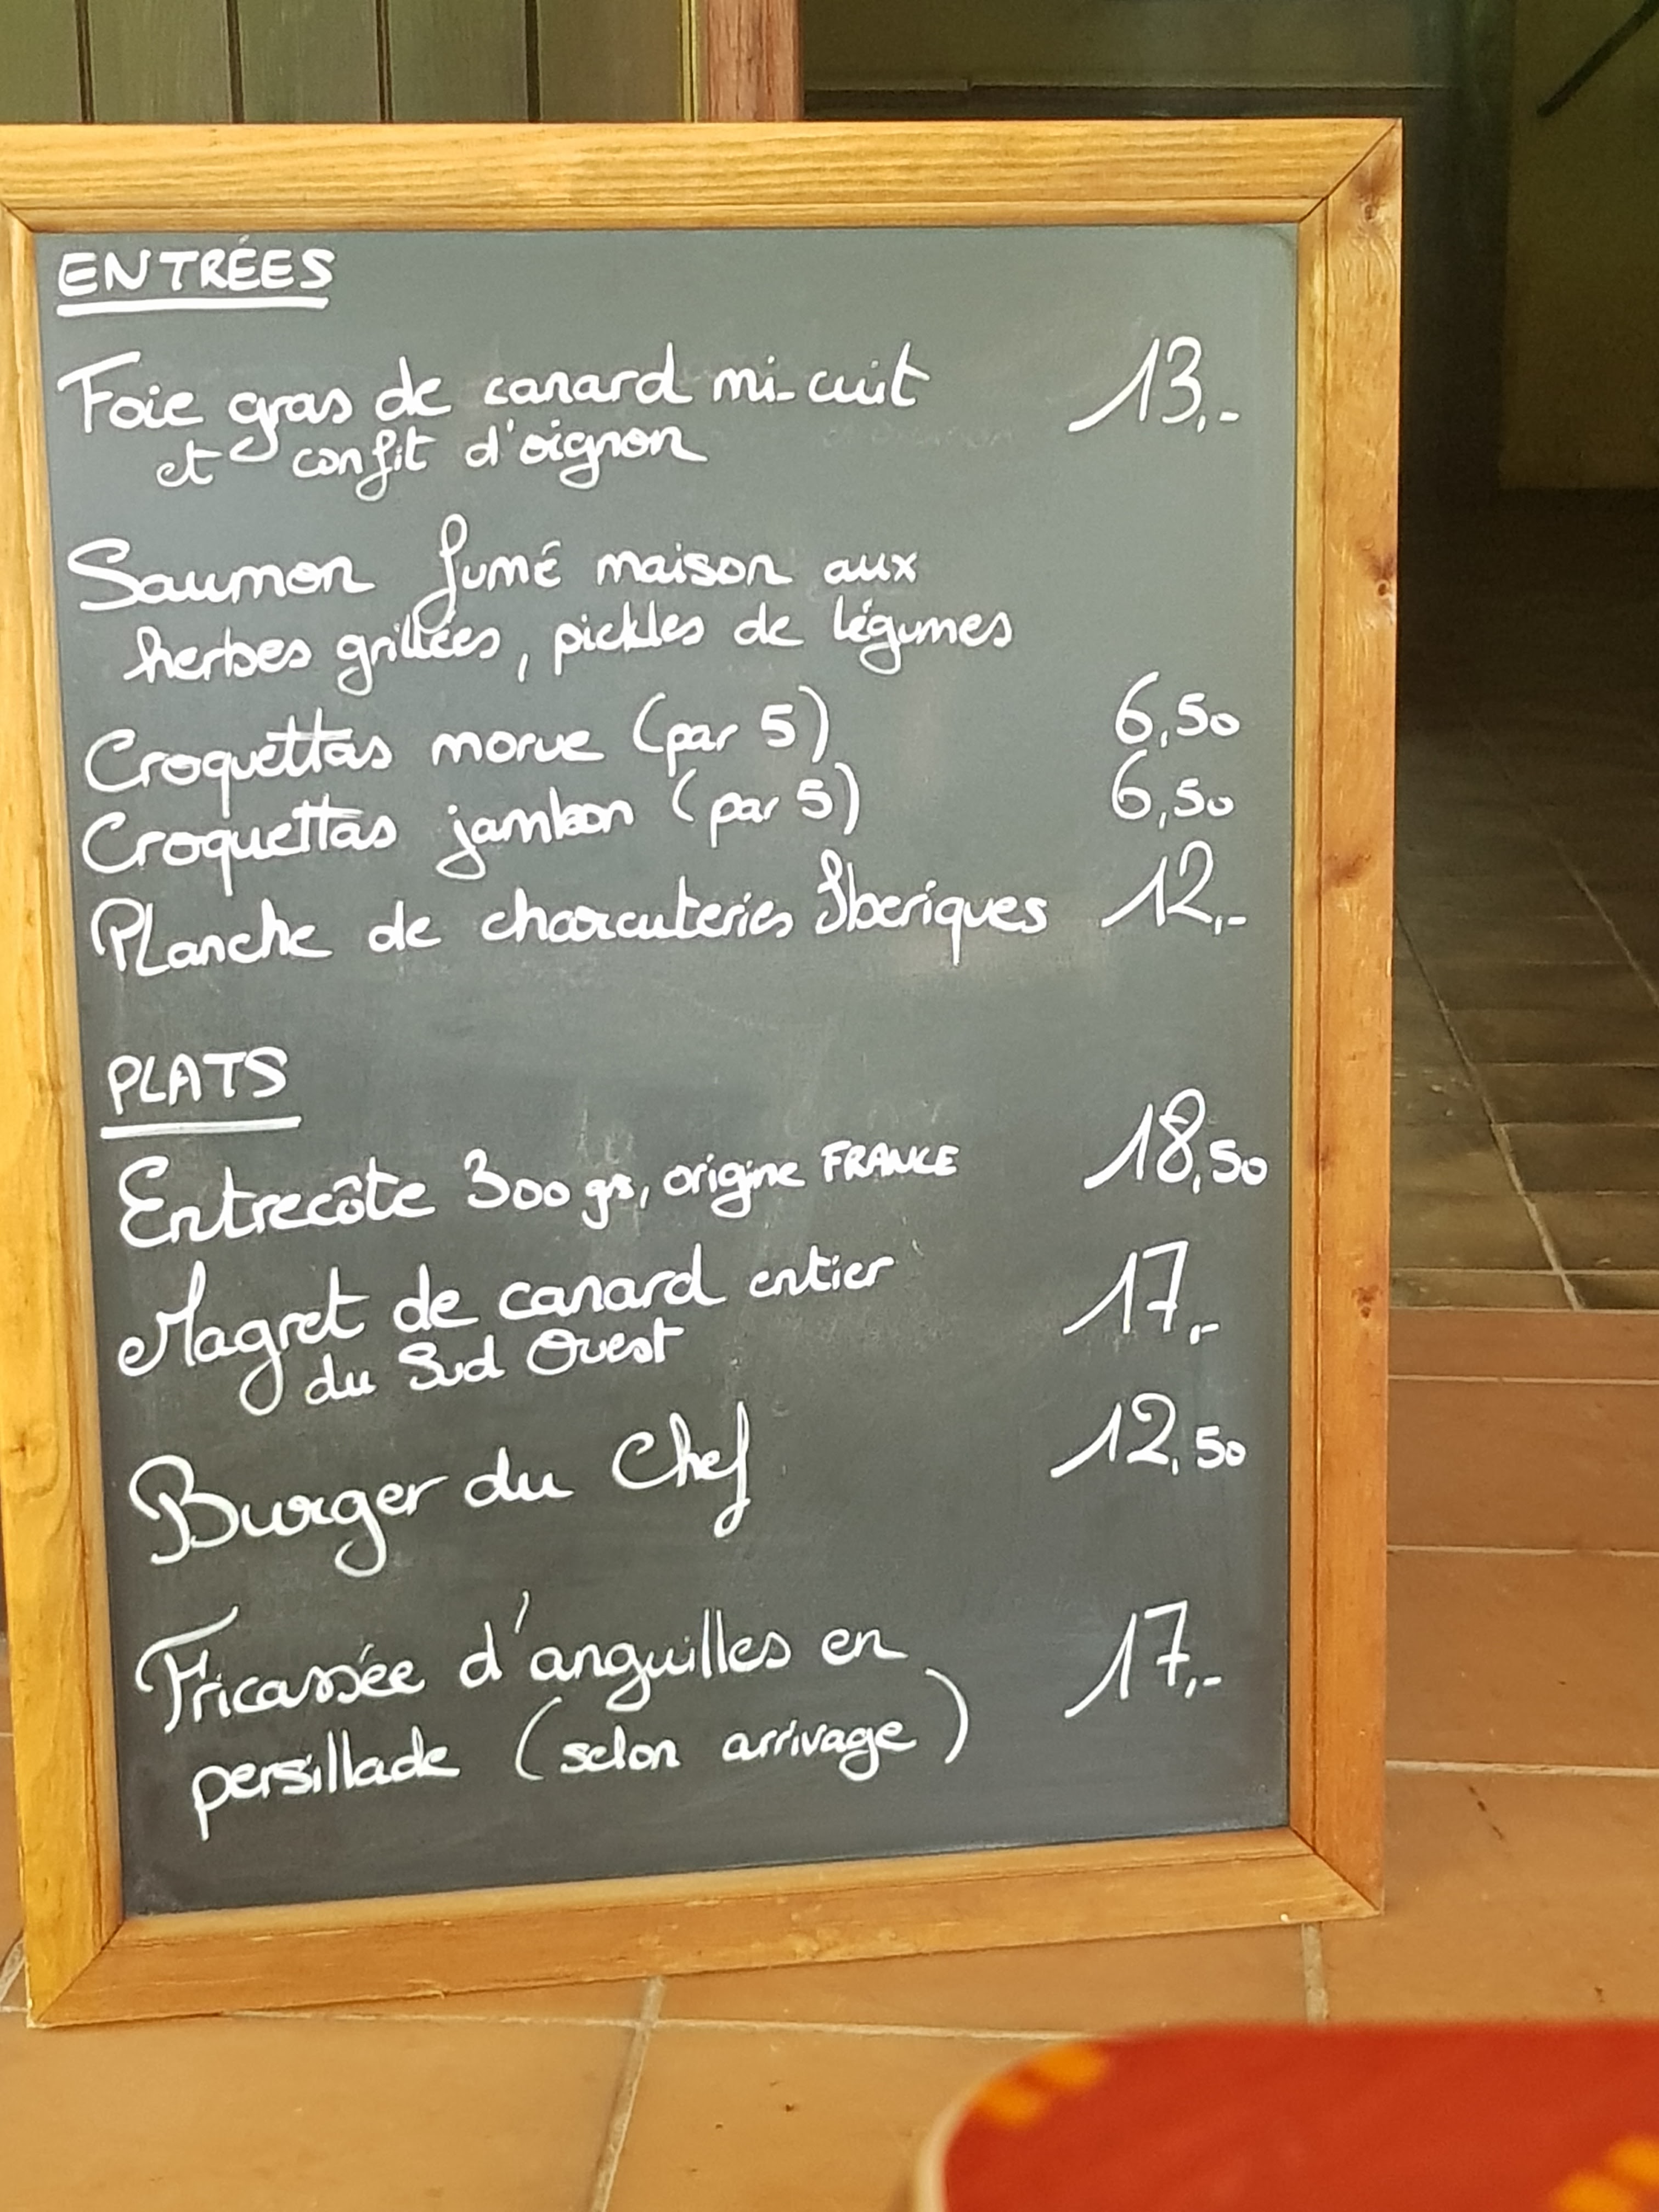 ENTRÉES
Foie gras de canard mi-cuit 13,-
et confit d'oignon
Saumon fumé maison aux
herbes grillées, pickles de légumes
Croquettas morue (par 5) 6,50
Croquettas jambon (par 5) 6,50
Planche de charcuteries Iberiques 12,-
PLATS
Entrecôte 300 grs, origine FRANCE 18,50
Magret de canard entier 17,-
du Sud Ouest
Burger du Chef 12,50
Fricassée d'anguilles en 17,-
persillade (selon arrivage)